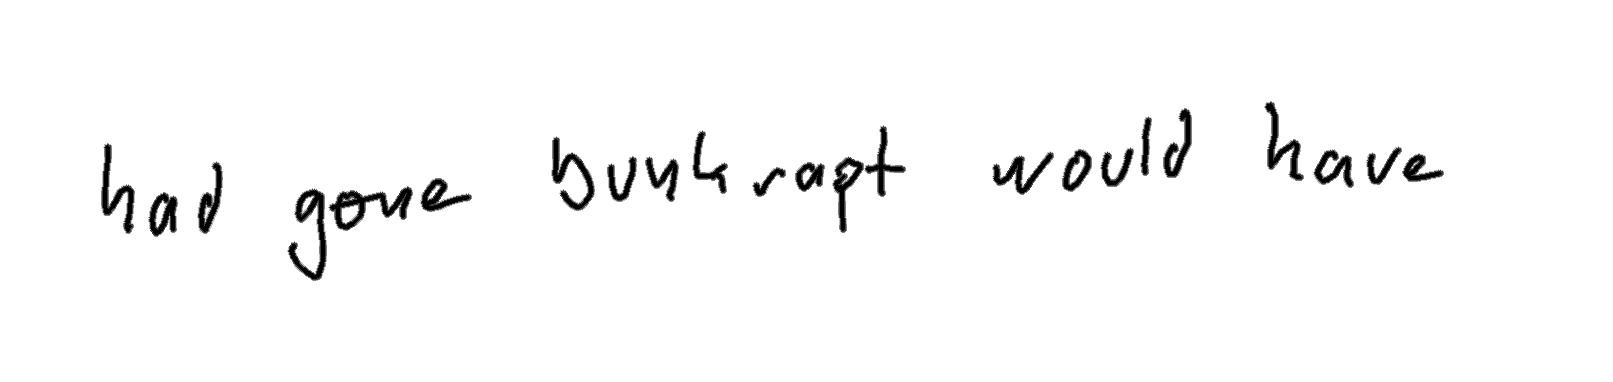 had gone bunkrapt would have